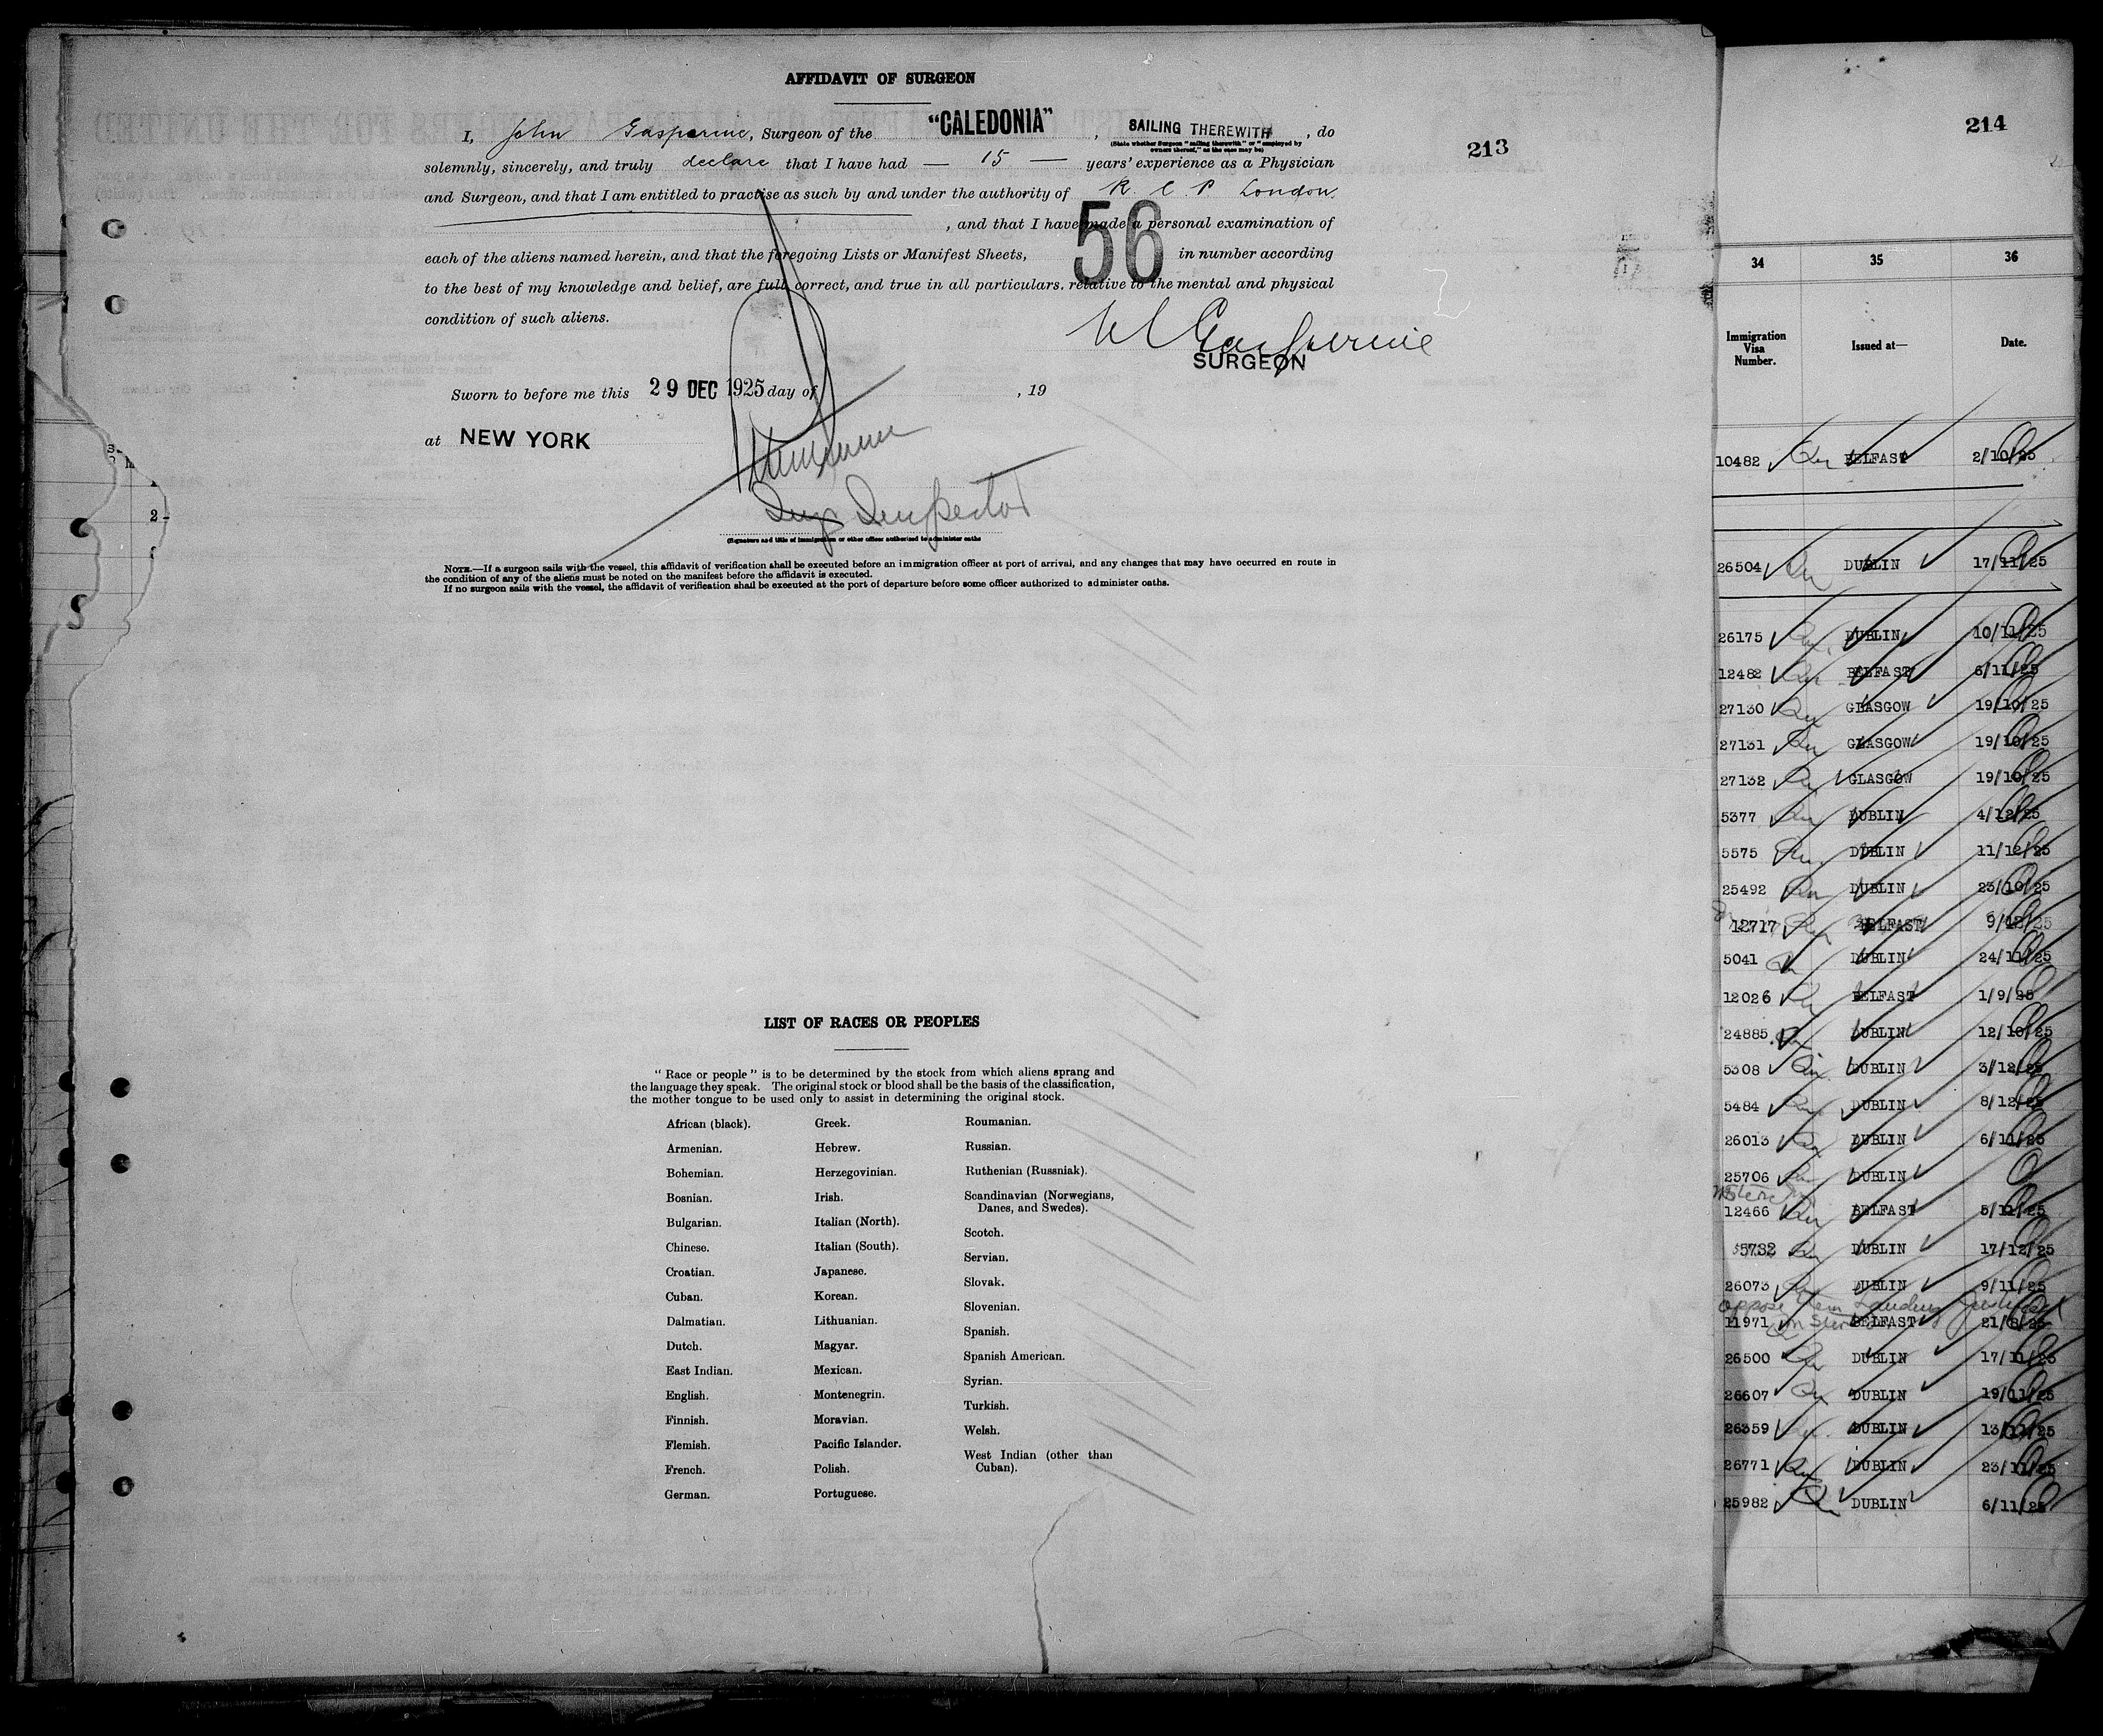 AFFIDAVIT OF SURGEON
I, John Gasperine, Surgeon of the "CALEDONIA", SAILING THEREWITH, do
(State whether Surgeon "sailing therewith" or "employed by
owners thereof," as the case may be)
solemnly, sincerely, and truly declare that I have had — 15 — years' experience as a Physician
and Surgeon, and that I am entitled to practise as such by and under the authority of R. C. P. London.
, and that I have made a personal examination of
each of the aliens named herein, and that the foregoing Lists or Manifest Sheets, 56 in number according
to the best of my knowledge and belief, are full, correct, and true in all particulars, relative to the mental and physical
condition of such aliens.
SURGEON
Sworn to before me this 29 DEC 1925 day of , 19
at NEW YORK
Inspector
(Signature and title of immigration or other officer authorized to administer oaths
NOTE.—If a surgeon sails with the vessel, this affidavit of verification shall be executed before an immigration officer at port of arrival, and any changes that may have occurred en route in
the condition of any of the aliens must be noted on the manifest before the affidavit is executed.
If no surgeon sails with the vessel, the affidavit of verification shall be executed at the port of departure before some officer authorized to administer oaths.
213
LIST OF RACES OR PEOPLES
"Race or people" is to be determined by the stock from which aliens sprang and
the language they speak. The original stock or blood shall be the basis of the classification,
the mother tongue to be used only to assist in determining the original stock.
African (black).
Armenian.
Bohemian.
Bosnian.
Bulgarian.
Chinese.
Croatian.
Cuban.
Dalmatian.
Dutch.
East Indian.
English.
Finnish.
Flemish.
French.
German.
Greek.
Hebrew.
Herzegovinian.
Irish.
Italian (North).
Italian (South).
Japanese.
Korean.
Lithuanian.
Magyar.
Mexican.
Montenegrin.
Moravian.
Pacific Islander.
Polish.
Portuguese.
Roumanian.
Russian.
Ruthenian (Russniak).
Scandinavian (Norwegians,
Danes, and Swedes).
Scotch.
Servian.
Slovak.
Slovenian.
Spanish.
Spanish American.
Syrian.
Turkish.
Welsh.
West Indian (other than
Cuban).
214
34 35 36
Immigration
Visa
Number.
Issued at—
Date.
10482 BELFAST 2/10/25
26504 DUBLIN 17/11/25
26175 DUBLIN 10/11/25
12482 BELFAST 6/11/25
27130 GLASGOW 19/10/25
27131 GLASGOW 19/10/25
27132 GLASGOW 19/10/25
5377 DUBLIN 4/12/25
5575 DUBLIN 11/12/25
25492 DUBLIN 23/10/25
12717 BELFAST 9/12/25
5041 DUBLIN 24/11/25
12026 BELFAST 1/9/25
24885 DUBLIN 12/10/25
5308 DUBLIN 3/12/25
5484 DUBLIN 8/12/25
26013 DUBLIN 6/11/25
25706 DUBLIN
12466 BELFAST 5/11/25
5732 DUBLIN 17/12/25
26073 DUBLIN 9/11/25
11971 BELFAST 21/8/25
26500 DUBLIN 17/11/25
26607 DUBLIN 19/11/25
26359 DUBLIN 13/11/25
26771 DUBLIN 23/11/25
25982 DUBLIN 6/11/25